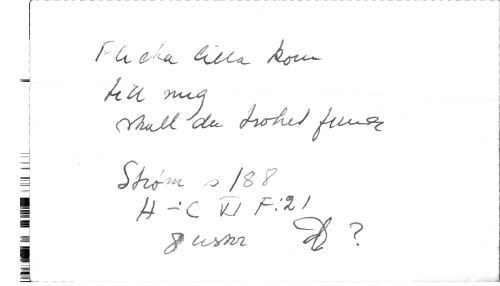 Flicka lilla kom
till mig
skall du trohet finna
Ström s 188
H-C VI F:21
8 ?